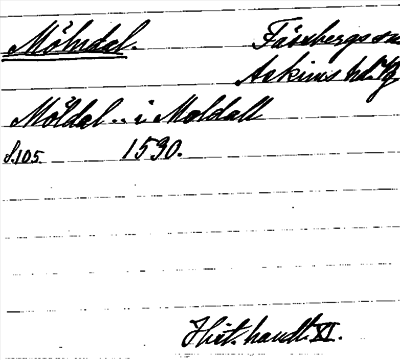 Mölndal. Fässbergs sn
Askims hd. Vg
Möldal .. i Moldall
S.105. 1590.
Hist. handl. XI.